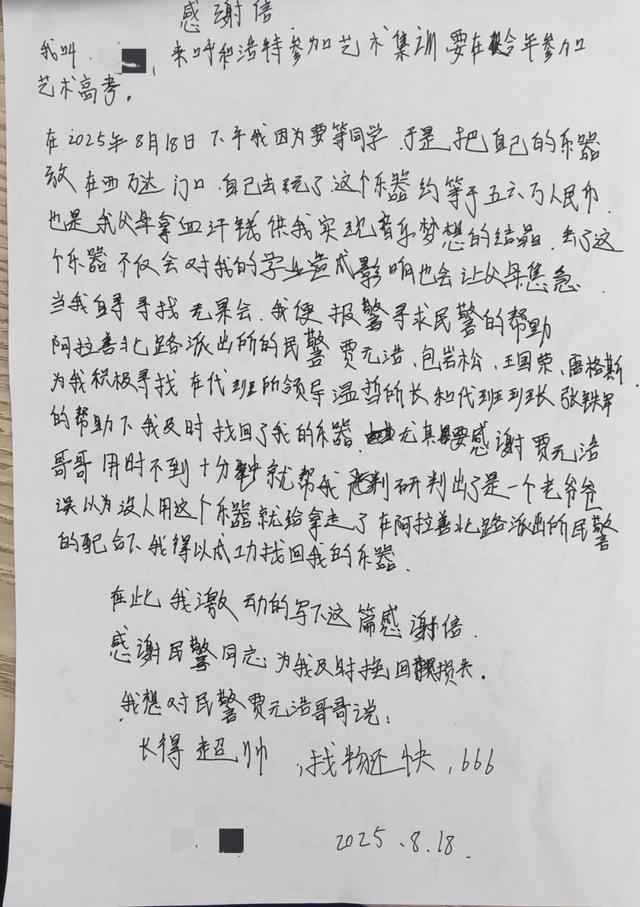 感谢信
我叫 ，来呼和浩特参加艺术集训 要在今年参加
艺术高考。
在2025年8月18日下午我因为要等同学 于是把自己的乐器
放在西万达门口 自己去玩了 这个乐器约等于五六万人民币
也是我父母拿血汗钱供我实现音乐梦想的结晶 丢了这
个乐器不仅会对我的学业造成影响也会让父母焦急
当我自寻寻找无果会 我便报警寻求民警的帮助
阿拉善北路派出所的民警贾元浩、包岩松、王国荣、唐格斯
为我积极寻找 在代班所领导温哲所长和代班班长张铁军
的帮助下我及时找回了我的乐器 尤其要感谢贾元浩
哥哥用时不到十分钟就帮我研判出了是一个老爷爷
误以为没人用这个乐器就给拿走了在阿拉善北路派出所民警
的配合下我得以成功找回我的乐器
在此我激动的写下这篇感谢信.
感谢民警同志为我及时挽回损失。
我想对民警贾元浩哥哥说:
长得超帅,找物还快,666
2025.8.18.